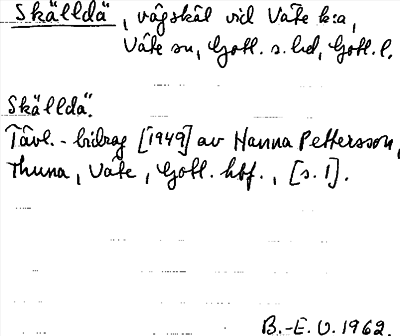 Skälldä, vägskäl vid Väte k:a,
Väte sn, Gotl. s. hd, Gotl. l.
Skälldä.
Tävl.-bidrag [1949] av Hanna Pettersson,
Thuna, Väte, Gotl. hbf., [s. 1].
B.-E. O. 1962.